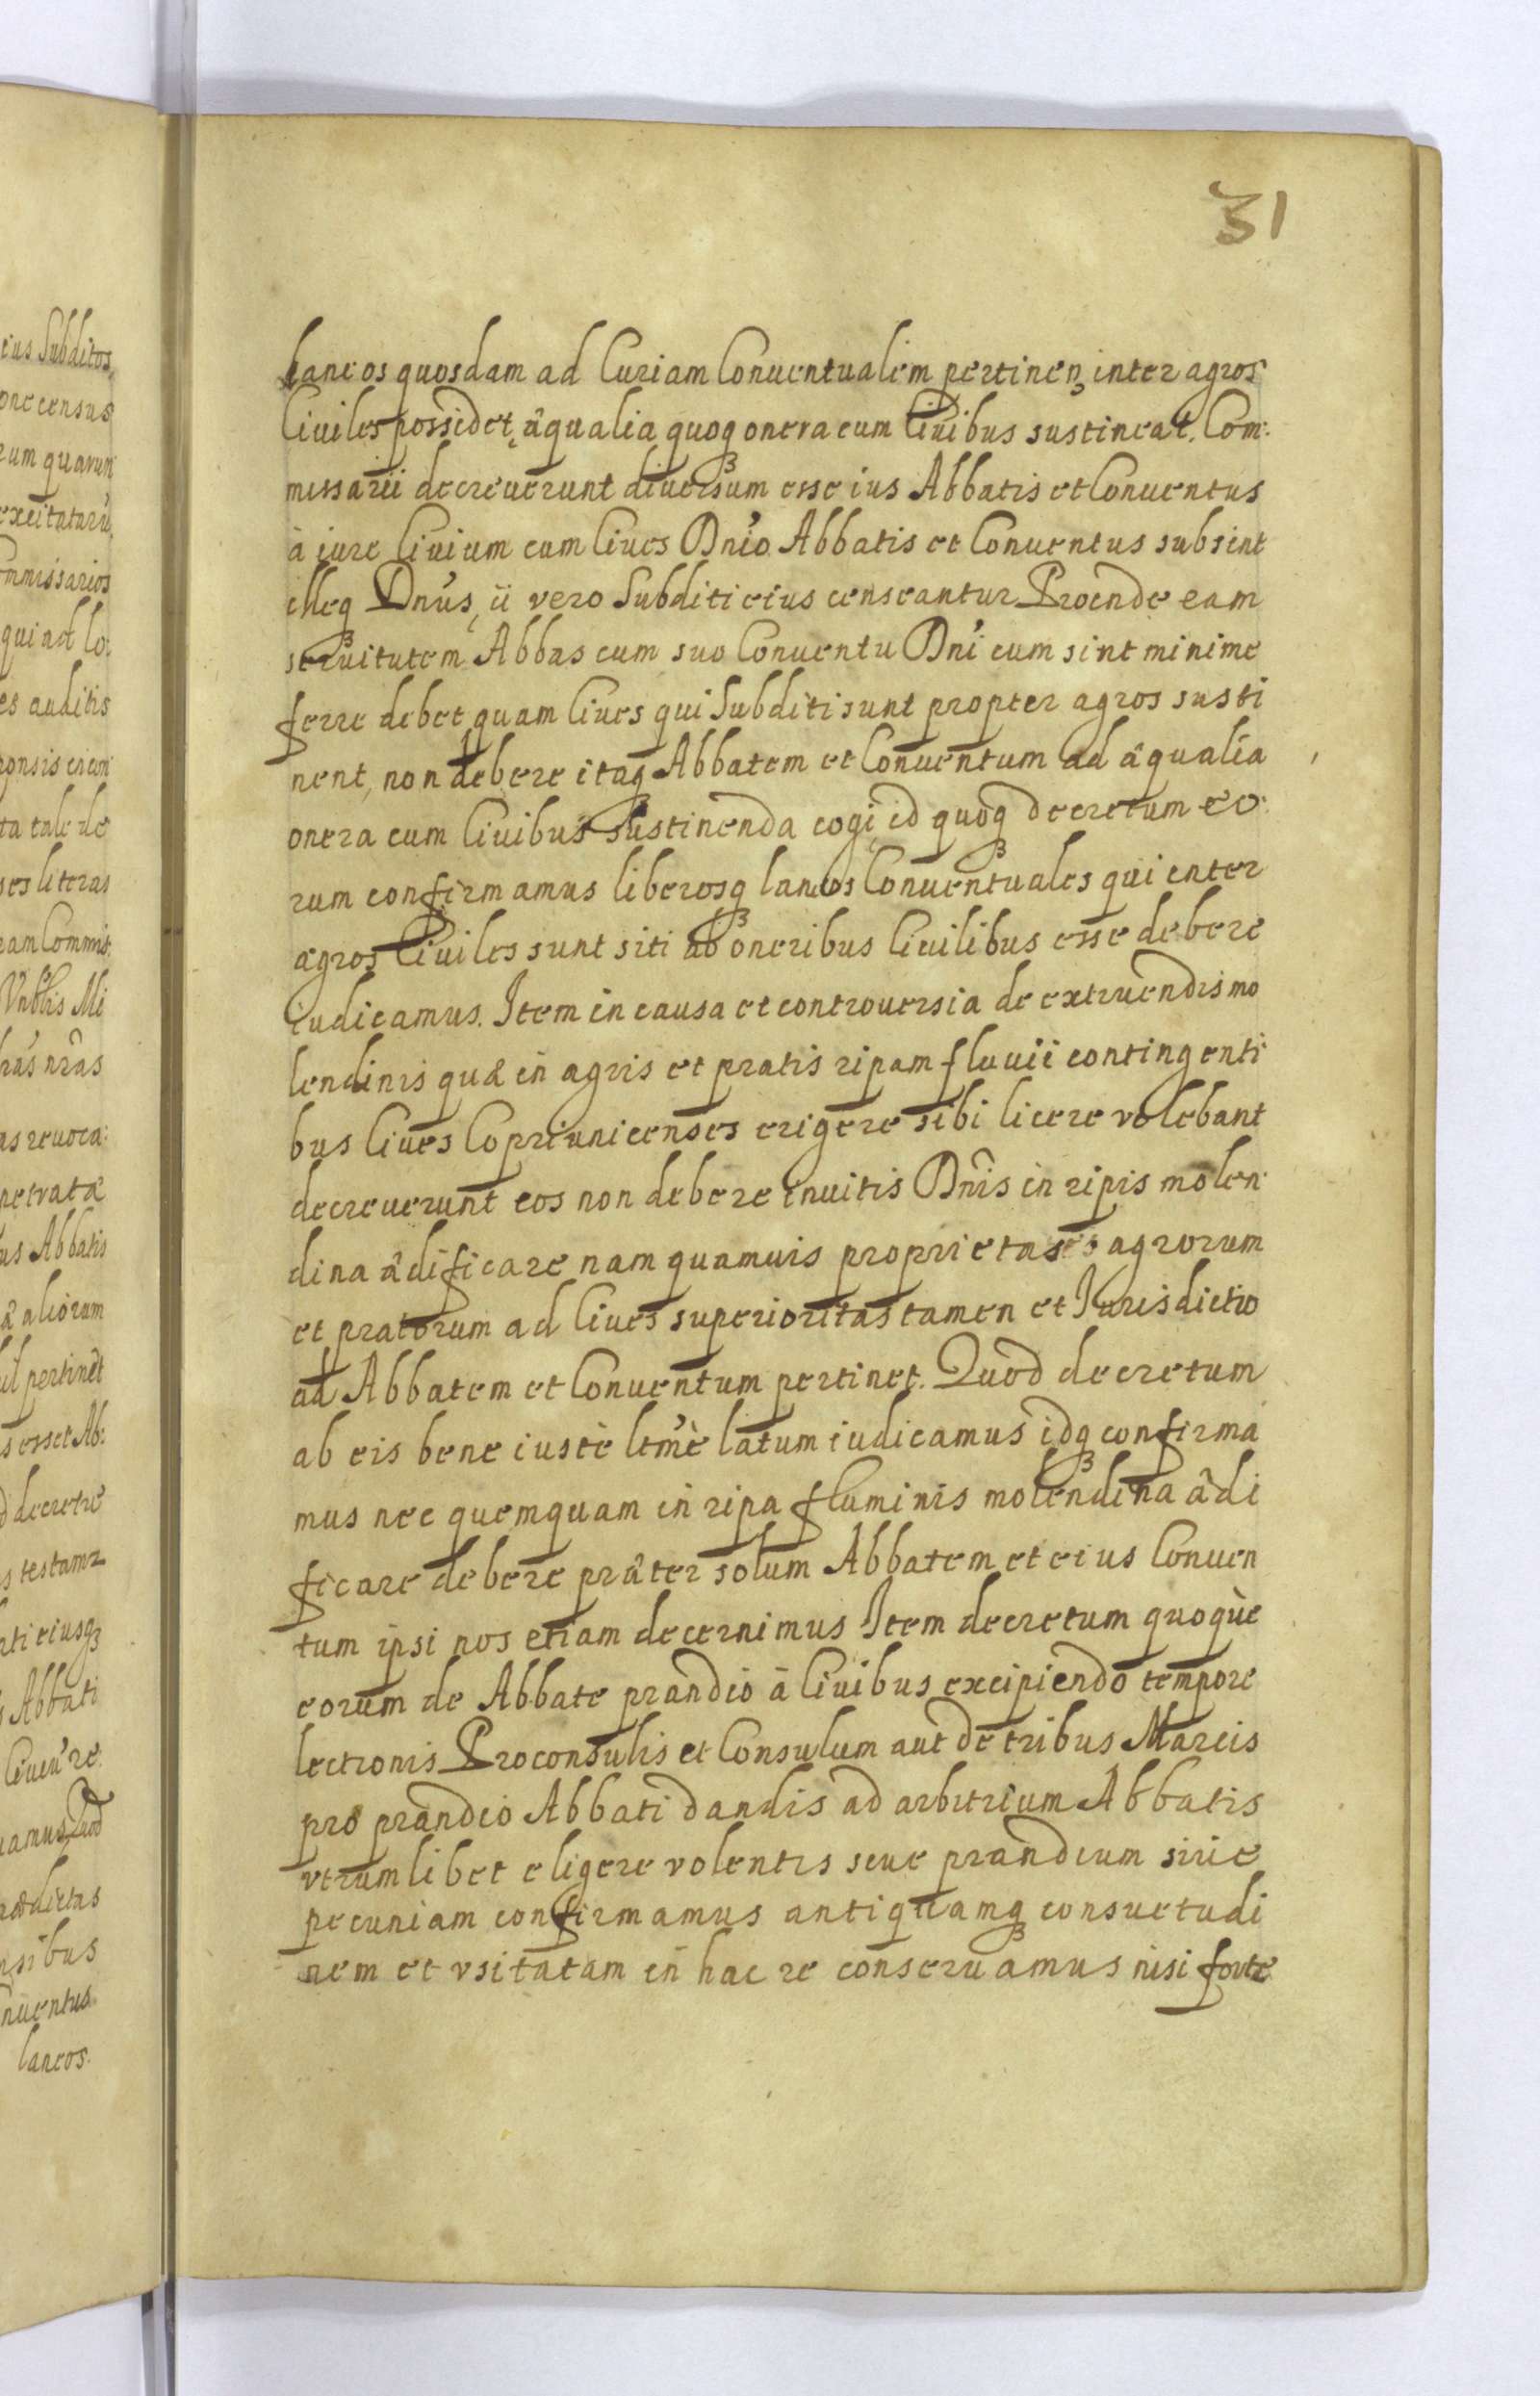 31
laneos quosdam ad Curiam Conuentualem pertinen inter agros
Ciuiles possidet, âqualia quoq3 onera cum Ciuibus sustineat. Com:
missarii decreuerunt diuersum esse ius Abbatis et Conuentus
à iure Ciuium cum Ciues Dnio Abbatis et Conuentus subsint
illeq3 Dnus, ii vero Subditi eius censeantur Proinde eam
seruitutem Abbas cum suo Conuentu Dni cum sint minime
ferre debet quam Ciues qui Subditi sunt propter agros susti
nent, non debere itaq3 Abbatem et Conuentum ad âqualia
onera cum Ciuibus sustinenda cogi, id quoq3 decretum eo:
rum confirmamus liberosq3 laneos Conuentuales qui inter
agros Ciuiles sunt siti ab oneribus Ciuilibus esse debere
iudicamus. Item in causa et controuersia de extruendis mo
lendinis quæ in agris et pratis ripam fluuii contingenti
bus Ciues Copriunicenses erigere sibi licere volebant
decreuerunt eos non debere inuitis Dnis in ripis molen:
dina âdificare nam quamuis proprietas agrorum
et pratorum ad Ciues superioritas tamen et Jurisdictio
ad Abbatem et Conuentum pertinet. Quod decretum
ab eis bene iustè ltmè latum iudicamus idq3 confirma
mus nec quemquam in ripa fluminis molendina âdi
ficare debere prâter solum Abbatem et eius Conuen
tum ipsi nos etiam decernimus Item decretum quoquè
eorum de Abbate prandio â Ciuibus excipiendo tempore
lectionis Proconsulis et Consulum aut de tribus Marcis
pro prandio Abbati dandis ad arbitrium Abbatis
vtrumlibet eligere volentis siue prandium siue
pecuniam confirmamus antiquamq3 consuetudi
nem et vsitatam in hac re conseruamus nisi forte